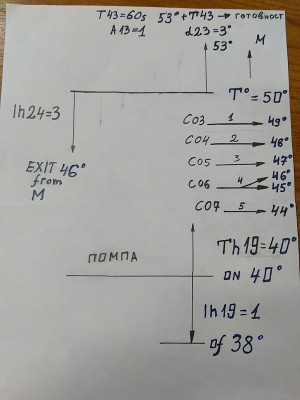 T43=60s 53°+T43 → готовност
A13=1 d23=3°
53° M
T°=50°
Ih24=3
CO3 1 49°
CO4 2 48°
CO5 3 47°
EXIT 46°
from
M
CO6 4 46°
45°
CO7 5 44°
Th19=40°
ПОМПА
ON 40°
Ih19=1
Of 38°